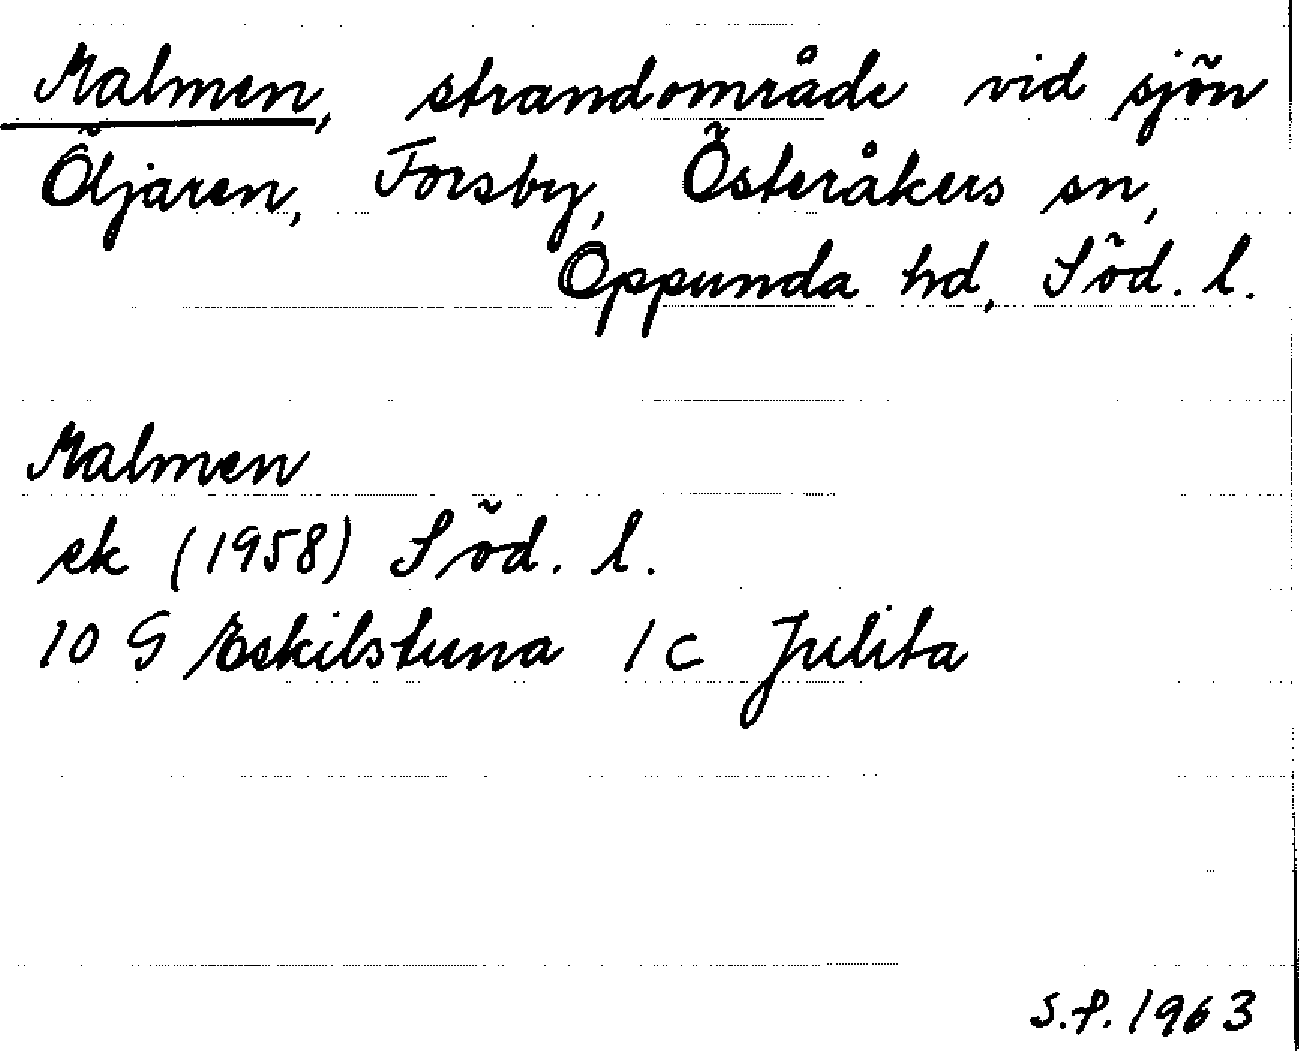 Malmen, strandområde vid sjön
Öljaren, Forsby, Österåkers sn,
Oppunda hd, Söd. l.
Malmen
ek (1958) Söd. l.
10 G Eskilstuna 1 c Julita
S.P. 1963